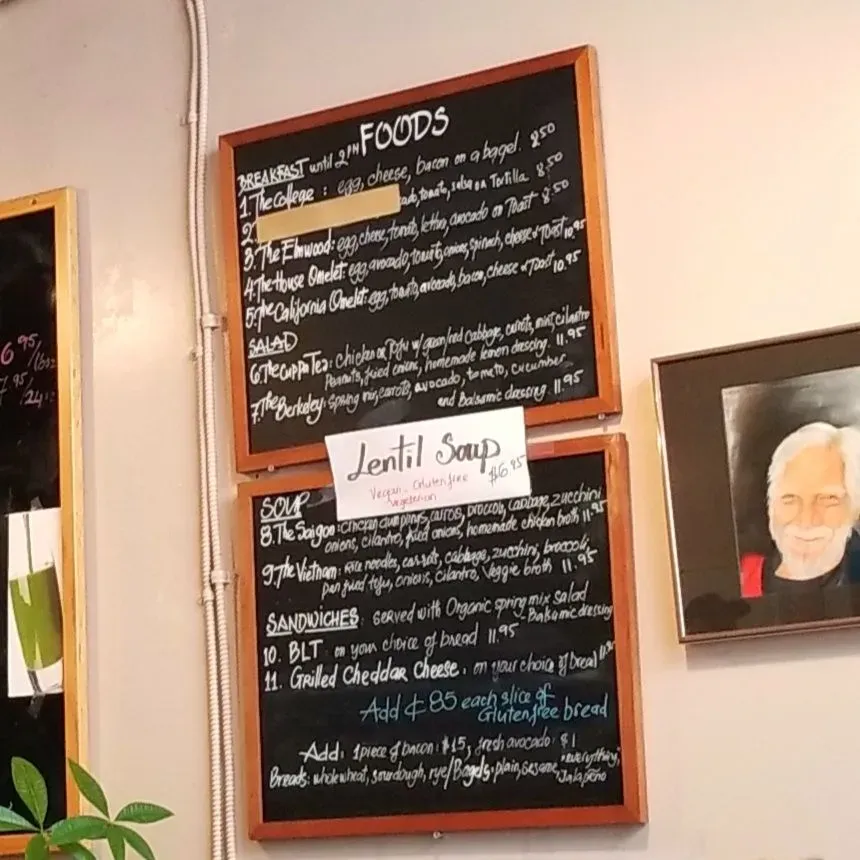 FOODS
BREAKFAST until 2PM
1. The College: egg, cheese, bacon on a bagel. 8.50
2. tomato, salsa on Tortilla. 8.50
3. The Elmwood: egg, cheese, tomato, avocado on Toast 8.50
4. The House Omelet: egg, avocado, tomato, onions, spinach, cheese Toast 10.95
5. The California Omelet: egg, tomato, avocado, bacon, cheese Toast 10.95
SALAD
6. The Cuppa Tea: chicken or Tofu w/ green/red Cabbage, carrots, mint, cilantro
Peanuts, fried onions, homemade lemon dressing. 11.95
7. The Berkeley: Spring mix, carrots, avocado, tomato, cucumber
and Balsamic dressing. 11.95
Lentil Soup
$6.95
Vegan - Gluten free
Vegetarian
SOUP
8. The Saigon: chicken dumplings, carrots, broccoli, cabbage, zucchini
onions, cilantro, fried onions, homemade chicken broth 11.95
9. The Vietnam: Rice noodles, carrots, cabbage, zucchini, broccoli,
pan fried tofu, onions, cilantro, Veggie broth 11.95
SANDWICHES: served with Organic spring mix salad
Balsamic dressing
10. BLT on your choice of bread 11.95
11. Grilled Cheddar Cheese, on your choice of bread
Add ¢85 each slice of
Gluten free bread
Add: 1 piece of bacon: $1.5, fresh avocado: $1
Breads: whole wheat, sourdough, rye/Bagels: plain, sesame, "everything",
Jalapeño
6.95/16oz
7.95/24